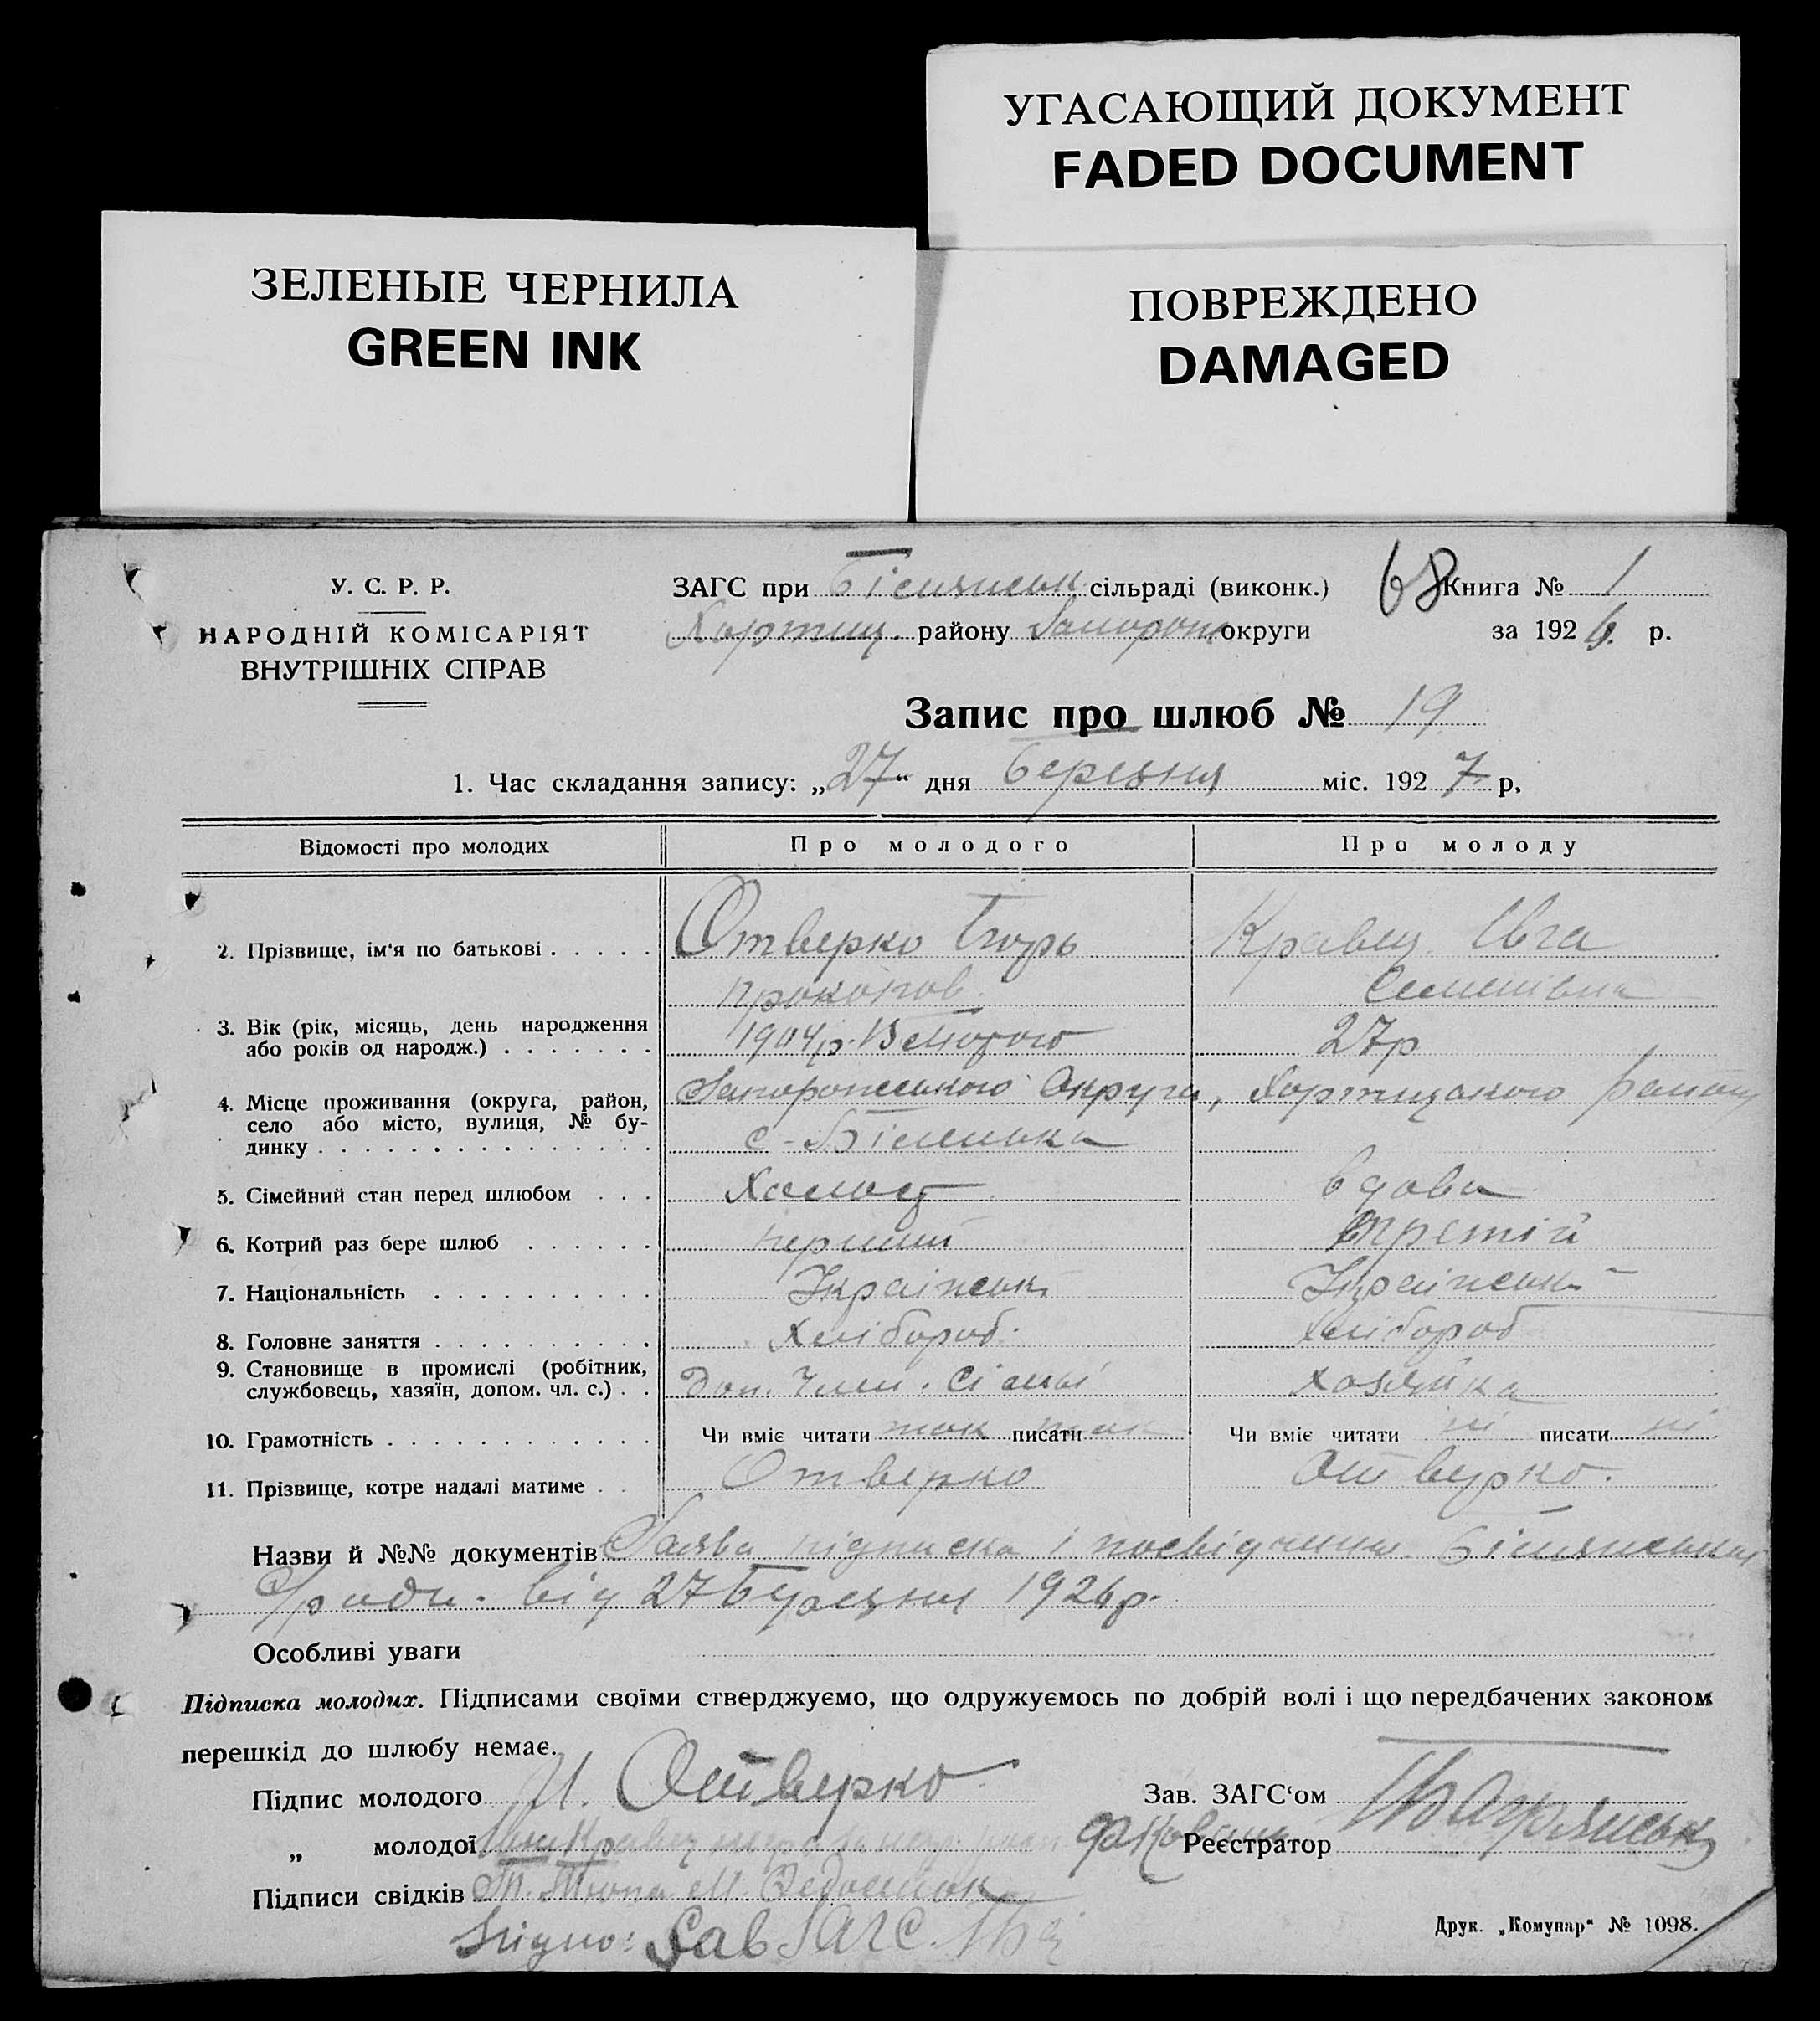 УГАСАЮЩИЙ ДОКУМЕНТ
FADED DOCUMENT
ЗЕЛЕНЫЕ ЧЕРНИЛА
GREEN INK
ПОВРЕЖДЕНО
DAMAGED
У. С. Р. Р.
НАРОДНІЙ КОМІСАРІЯТ
ВНУТРІШНІХ СПРАВ
ЗАГС при сільраді (виконк.)
Хортиц. району Запорож округи
68
Книга № 1
за 1926. р.
Запис про шлюб № 19
1. Час складання запису: „27“ дня березня міс. 1927 р.
Відомості про молодих Про молодого Про молоду
2. Прізвище, ім'я по батькові Отверко Кравец Ивга
Прокопов. Семенівна
3. Вік (рік, місяць, день народження або років од народж.) 1904р. Лютого 27р
4. Місце проживання (округа, район, село або місто, вулиця, № будинку Запорожського Округа, Хортицького району
с.
5. Сімейний стан перед шлюбом Холост вдова
6. Котрий раз бере шлюб перший третій
7. Національність Українськ Українськ
8. Головне заняття Хлібороб. Хлібороб
9. Становище в промислі (робітник, службовець, хазяїн, допом. чл. с.) Доп. Член. Сімьі Хозяйка
10. Грамотність Чи вміє читати так писати так Чи вміє читати ні писати ні
11. Прізвище, котре надалі матиме Отверко Отверко.
Назви й №№ документів Заява підписка і
С/ради. від 27 Березня 1926р.
Особливі уваги
Підписка молодих. Підписами своїми стверджуємо, що одружуємось по добрій волі і що передбачених законом
перешкід до шлюбу немає.
Підпис молодого И. Отверко
Зав. ЗАГС'ом
„ молодої Кравец
Реєстратор
Підписи свідків
Друк. „Комунар“ № 1098.
Згідно: Зав ЗАГС.